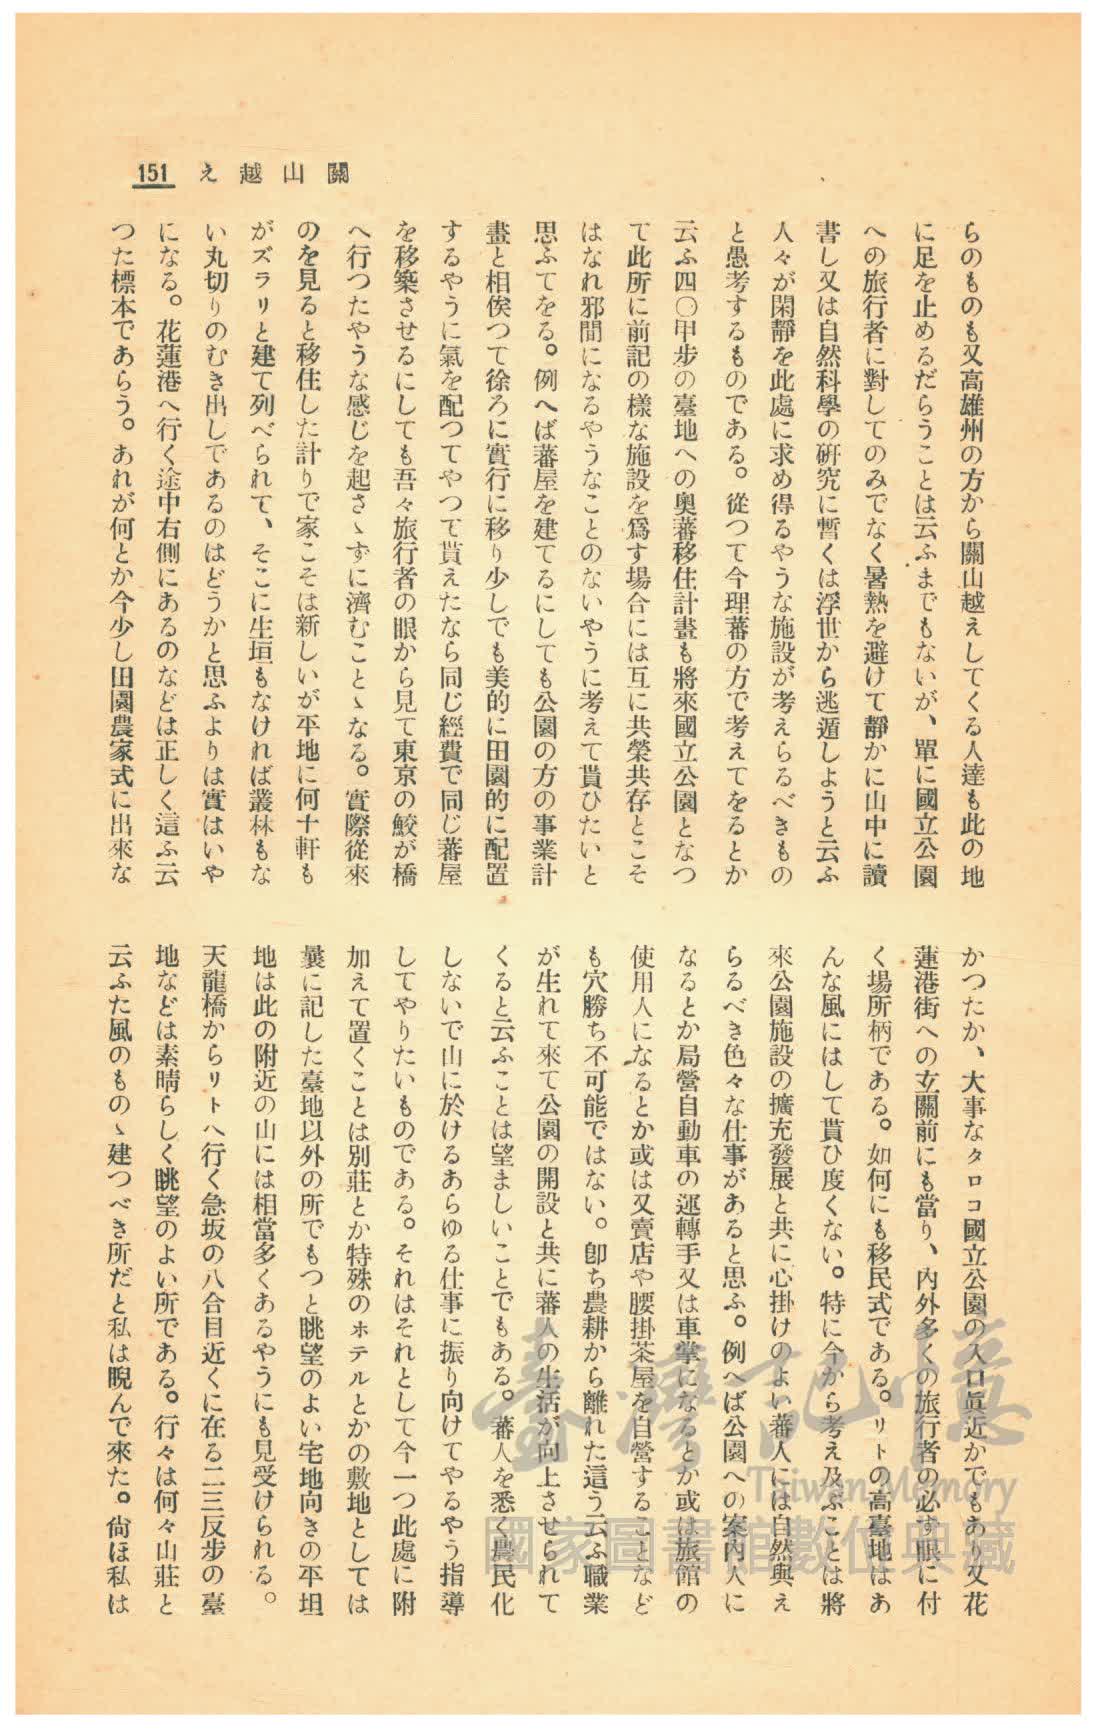 關山越え
151
らのものも又高雄州の方から關山越えしてくる人達も此の地
に足を止めるだらうことは云ふまでもないが、單に國立公園
への旅行者に對してのみでなく暑熱を避けて靜かに山中に讀
書し又は自然科學の硏究に暫くは浮世から逃遁しようと云ふ
人々が閑靜を此處に求め得るやうな施設が考えらるべきもの
と愚考するものである。從つて今理蕃の方で考えてをるとか
云ふ四〇甲步の臺地への奧蕃移住計畫も將來國立公園となつ
て此所に前記の樣な施設を爲す場合には互に共榮共存とこそ
はなれ邪間になるやうなことのないやうに考えて貰ひたいと
思ふてをる。例へば蕃屋を建てるにしても公園の方の事業計
畫と相俟つて徐ろに實行に移り少しでも美的に田園的に配置
するやうに氣を配つてやつて貰えたなら同じ經費で同じ蕃屋
を移築させるにしても吾々旅行者の眼から見て東京の鮫が橋
へ行つたやうな感じを起さゝずに濟むことゝなる。實際從來
のを見ると移住した計りで家こそは新しいが平地に何十軒も
がズラリと建て列べられて、そこに生垣もなければ叢林もな
い丸切りのむき出しであるのはどうかと思ふよりは實はいや
になる。花蓮港へ行く途中右側にあるのなどは正しく這ふ云
つた標本であらう。あれが何とか今少し田園農家式に出來な
かつたか、大事なタロコ國立公園の入口眞近かでもあり又花
蓮港街への玄關前にも當り、內外多くの旅行者の必ず眼に付
く場所柄である。如何にも移民式である。リトの高臺地はあ
んな風にはして貰ひ度くない。特に今から考え及ぶことは將
來公園施設の擴充發展と共に心掛けのよい蕃人には自然與え
らるべき色々な仕事があると思ふ。例へば公園への案內人に
なるとか局營自動車の運轉手又は車掌になるとか或は旅館の
使用人になるとか或は又賣店や腰掛茶屋を自營することなど
も穴勝ち不可能ではない。卽ち農耕から離れた這う云ふ職業
が生れて來て公園の開設と共に蕃人の生活が向上させられて
くると云ふことは望ましいことでもある。蕃人を悉く農民化
しないで山に於けるあらゆる仕事に振り向けてやるやう指導
してやりたいものである。それはそれとして今一つ此處に附
加えて置くことは別莊とか特殊のホテルとかの敷地としては
曩に記した臺地以外の所でもつと眺望のよい宅地向きの平坦
地は此の附近の山には相當多くあるやうにも見受けられる。
天龍橋からリトへ行く急坂の八合目近くに在る二三反步の臺
地などは素晴らしく眺望のよい所である。行々は何々山莊と
云ふた風のものゝ建つべき所だと私は睨んで來た。尙ほ私は
臺灣記憶
Taiwan Memory
國家圖書館數位典藏